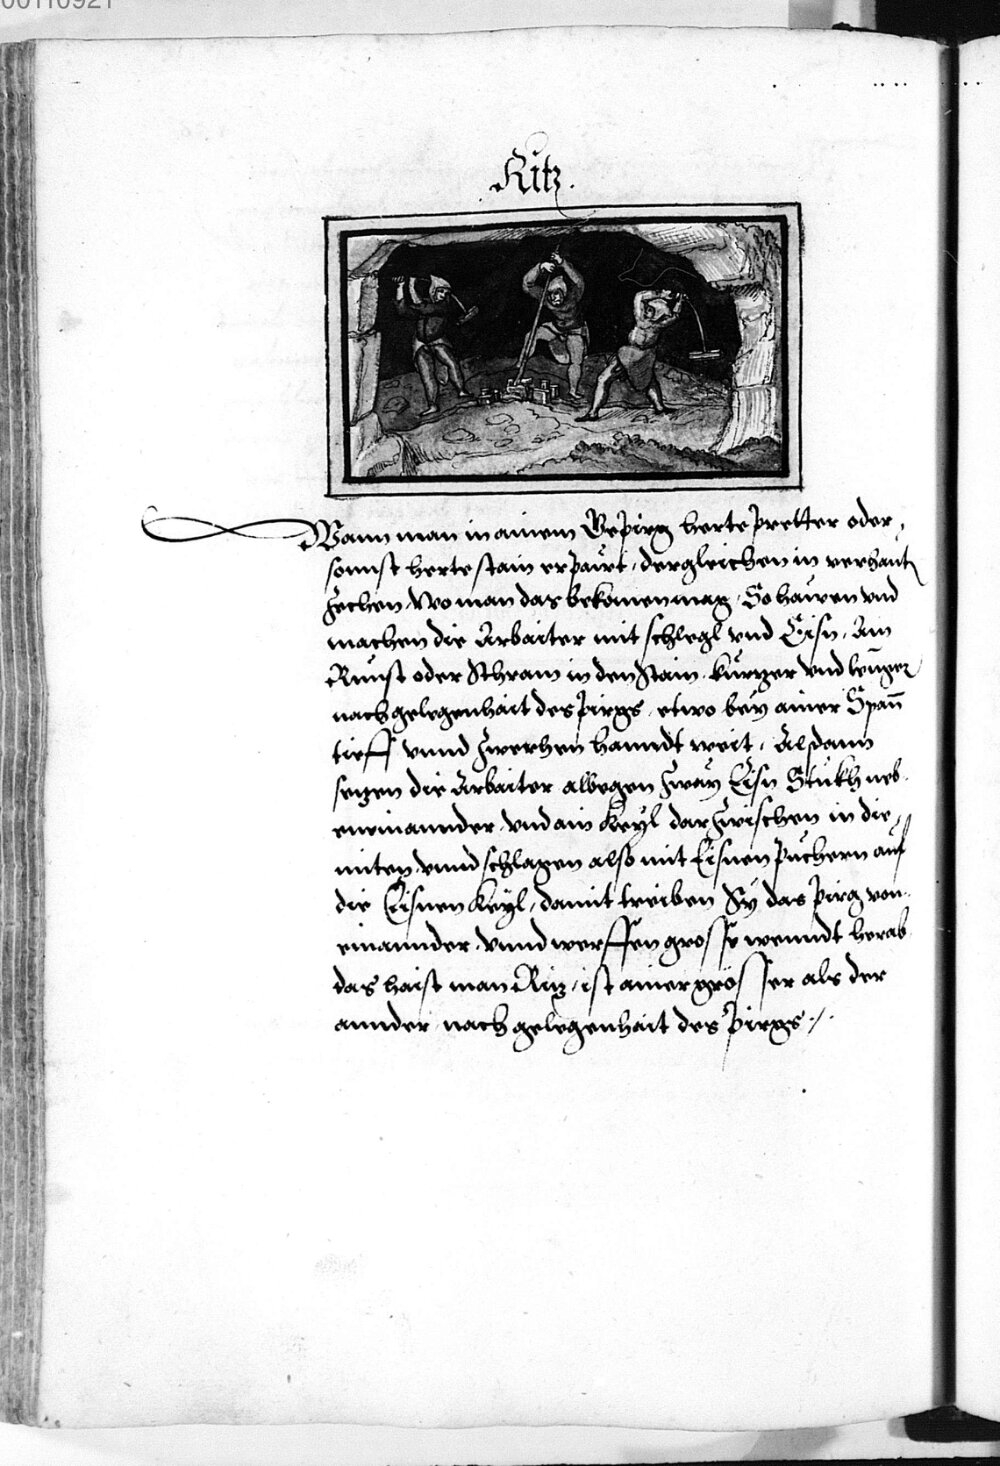 00110921
Ritz.
Wann man in ainem Gepirg herte pretter oder
sonnst herte stain erpaürt, dergleichen in verhaut
Zechen, wo man das bekomen mag, So hawen vnd
machen die Arbaiter mit schlegl vnd Eisn, Ain
Runst oder Schram in den Stain, kurtzer vnd lenger
nach gelegenhait des pirgs, etwo bey ainer Spann
tieff vnnd zwerhen hanndt weit, Alsdann
setzen die Arbaiter albegen zway Eisn Stukh neb-
eneinannder, vnd ain Keyl darzwischen in die
miten, vnnd schlagen also mit Eisnen puchern auf
die Eisnen Keyl, damit treiben Sy das pirg von-
einannder, vnnd werffen grosse wenndt herab
das haist man Ritz, ist ainer grösser als der
annder, nach gelegenhait des pirgs ./.